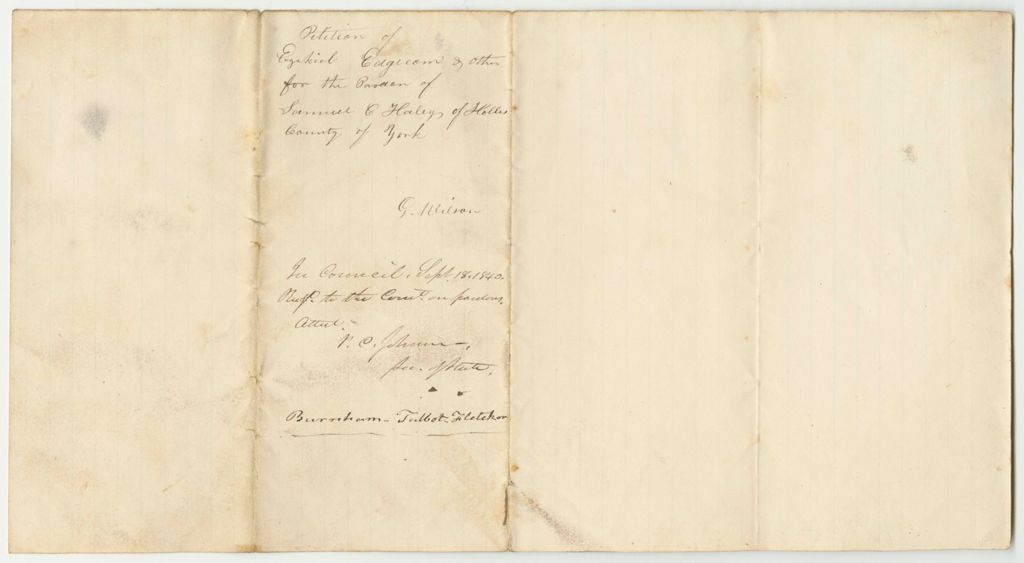 Petition of
Ezekiel Edgecom & other
for the Pardon of
Samuel C Haley, of Hollis
County of York
G. Wilson
In Council, Sept. 18. 1840.
Refd. to the Comt. on pardons,
Attest.
P. C. Johnson,
Sec. of State.
Burnham - Talbot - Fletcher